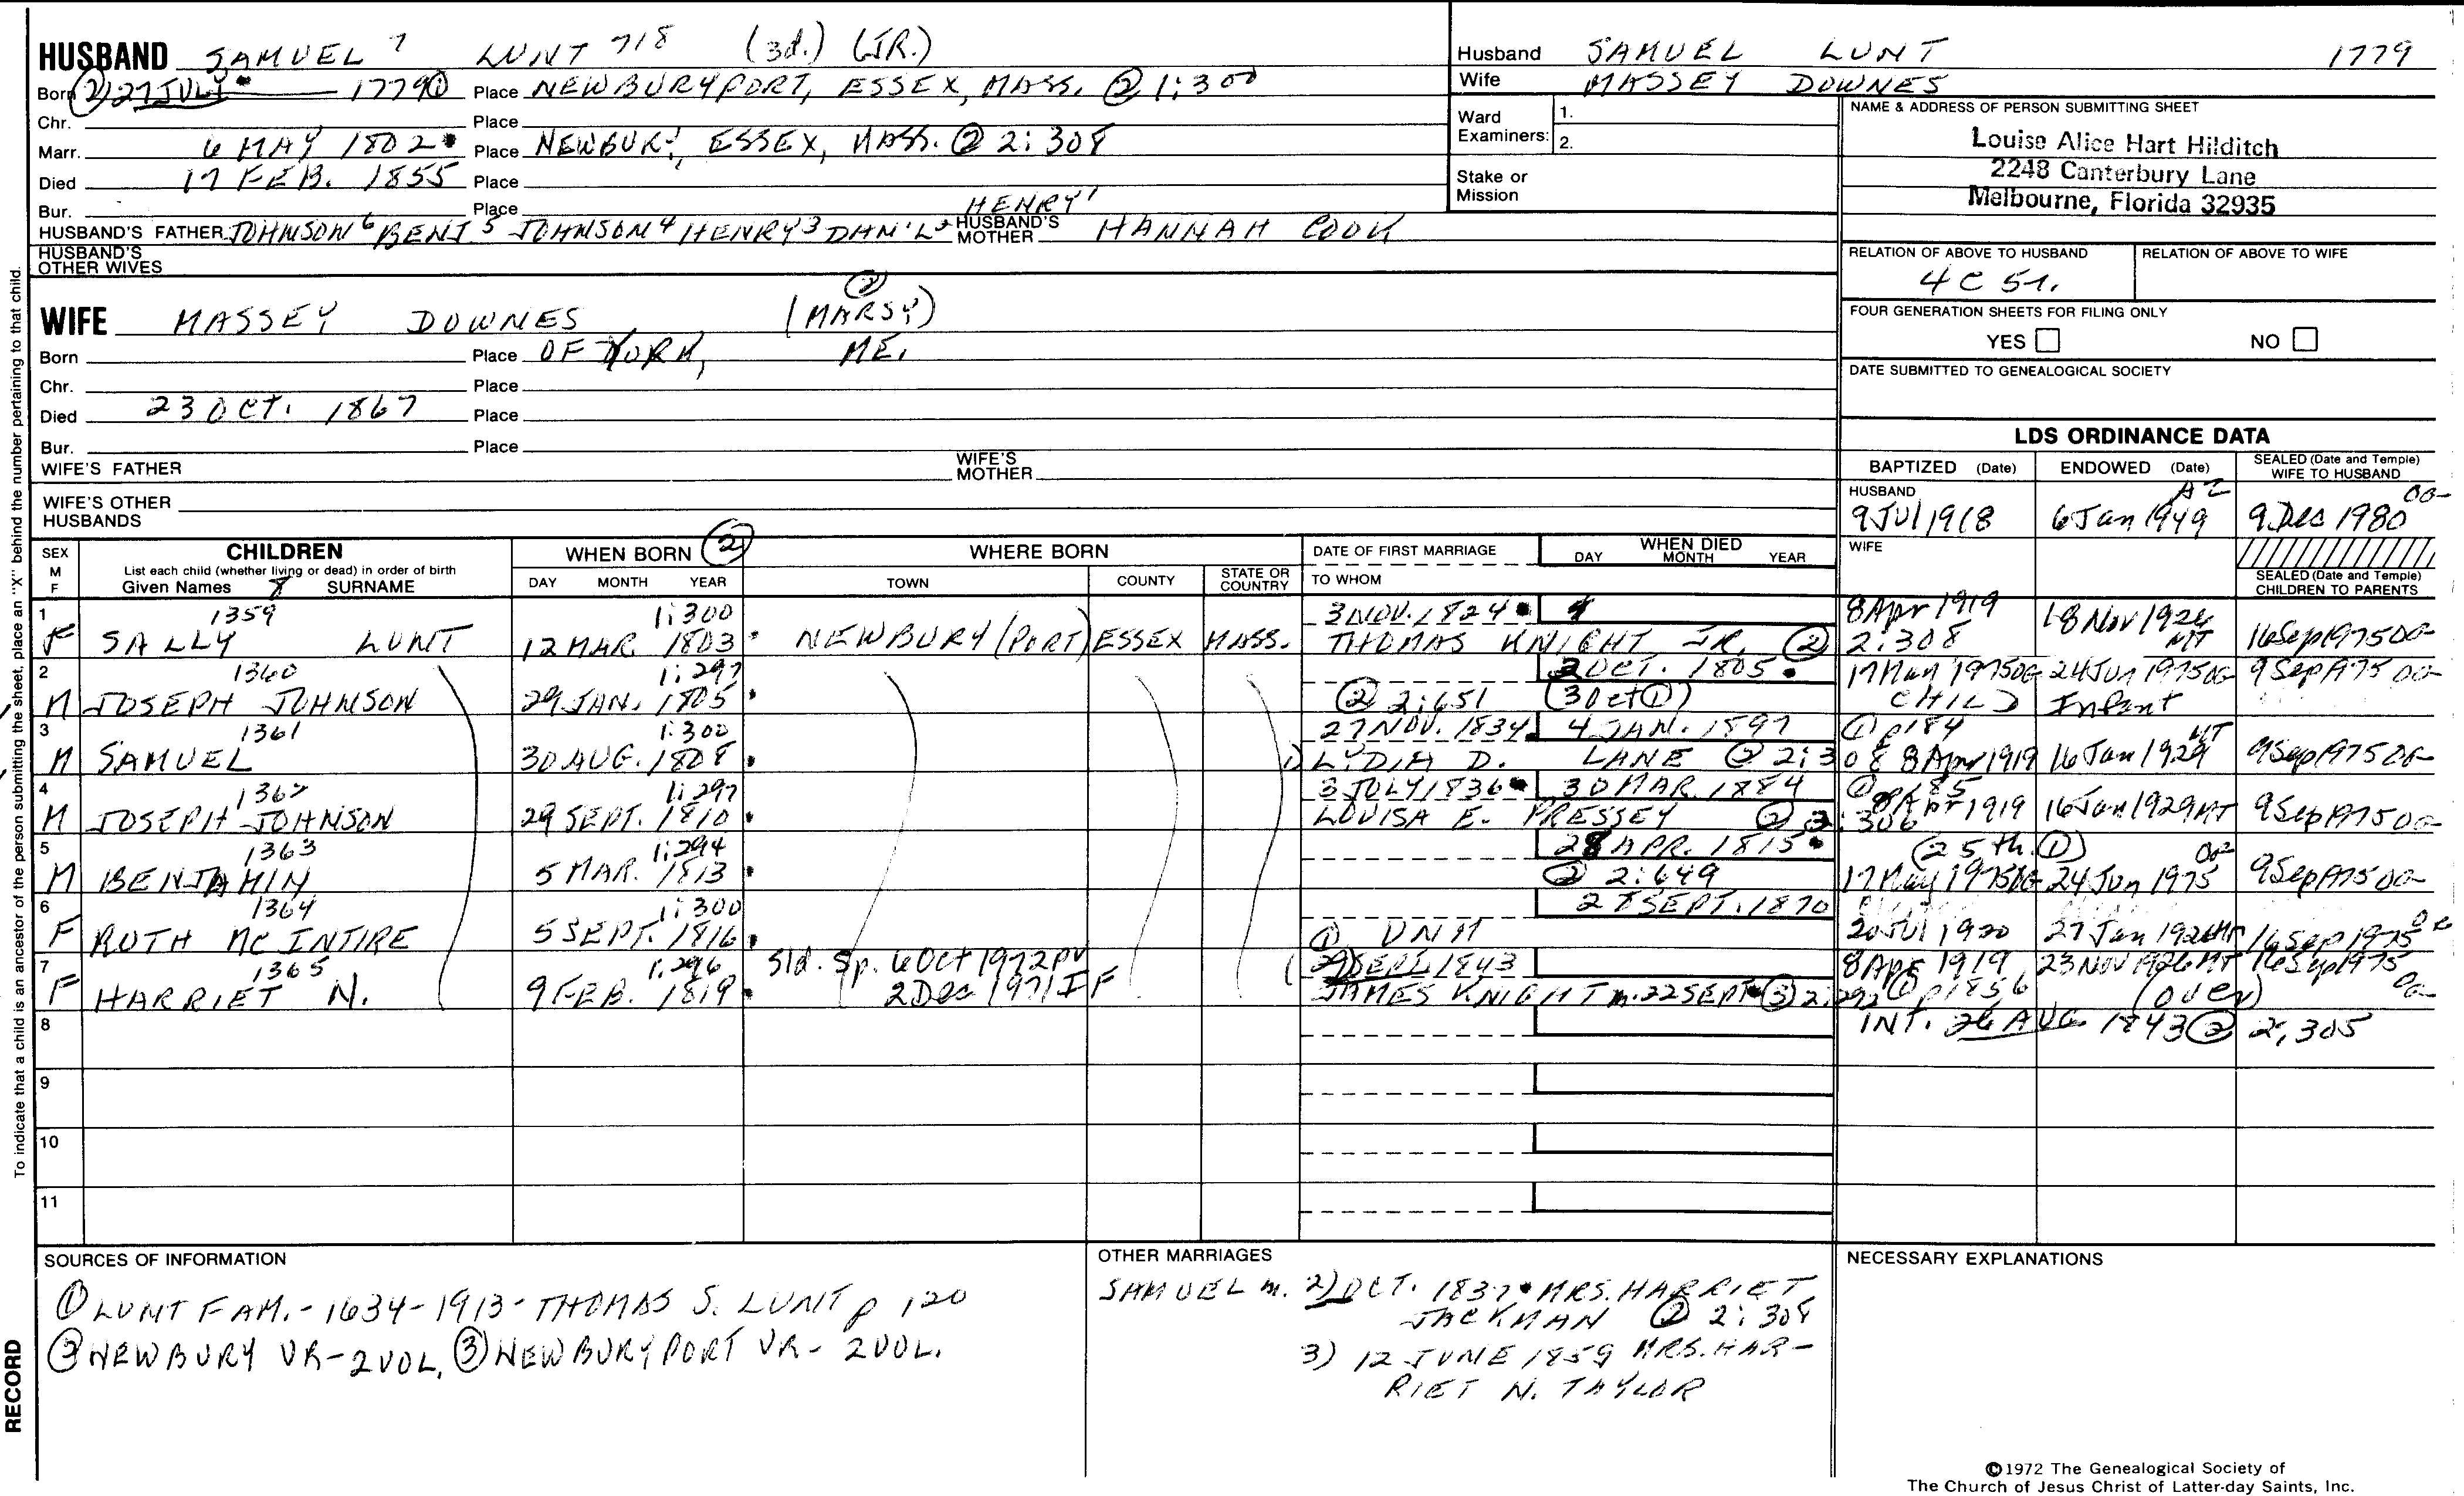 HUSBAND SAMUEL 7 LUNT 718 (3d.) (JR.)
Born ② 27 JULY 1779 ① Place NEWBURYPORT, ESSEX, MASS. ② 1:300
Chr. Place
Marr. 6 MAY 1802 Place NEWBURY, ESSEX, MASS. ② 2:308
Died 17 FEB. 1855 Place
Bur. Place HENRY 1
HUSBAND'S FATHER JOHNSON 6 BENJ. 5 JOHNSON 4 HENRY 3 DAN'L 2 HUSBAND'S MOTHER HANNAH COOK
HUSBAND'S OTHER WIVES
②
WIFE MASSEY DOWNES (MARSY)
Born Place OF YORK, ME.
Chr. Place
Died 23 OCT. 1867 Place
Bur. Place
WIFE'S FATHER WIFE'S MOTHER
WIFE'S OTHER HUSBANDS
Husband SAMUEL LUNT 1779
Wife MASSEY DOWNES
Ward Examiners: 1.
2.
Stake or Mission
NAME & ADDRESS OF PERSON SUBMITTING SHEET
Louise Alice Hart Hilditch
2248 Canterbury Lane
Melbourne, Florida 32935
RELATION OF ABOVE TO HUSBAND RELATION OF ABOVE TO WIFE
4C 5r.
FOUR GENERATION SHEETS FOR FILING ONLY
YES NO
DATE SUBMITTED TO GENEALOGICAL SOCIETY
LDS ORDINANCE DATA
BAPTIZED (Date) ENDOWED (Date) SEALED (Date and Temple) WIFE TO HUSBAND
HUSBAND AZ OG
9 Jul 1918 6 Jan 1949 9 Dec 1980
WIFE
SEALED (Date and Temple) CHILDREN TO PARENTS
To indicate that a child is an ancestor of the person submitting the sheet, place an "X" behind the number pertaining to that child.
SEX M F CHILDREN WHEN BORN ② WHERE BORN DATE OF FIRST MARRIAGE WHEN DIED
List each child (whether living or dead) in order of birth
Given Names 8 SURNAME DAY MONTH YEAR TOWN COUNTY STATE OR COUNTRY TO WHOM DAY MONTH YEAR
1 1359 1:300 3 NOV. 1824 8 Apr 1919 18 Nov 1926 MT
F SALLY LUNT 12 MAR. 1803 NEWBURY(PORT) ESSEX MASS. THOMAS KNIGHT JR. ② 2:308 16 Sep 1975 OG
2 1360 1:297 2 OCT. 1805 17 May 1975 OG 24 Jun 1975 OG 9 Sep 1975 OG
M JOSEPH JOHNSON 29 JAN. 1805 ② 2:651 (3 Oct ①) CHILD Infant
3 1361 1:300 27 NOV. 1834 4 JAN. 1897 ① p 184 MT
M SAMUEL 30 AUG. 1808 1) LYDIA D. LANE ② 2:308 8 Apr 1919 16 Jan 1929 9 Sep 1975 OG
4 1362 1:297 3 JULY 1836 30 MAR. 1884 ① p 185
M JOSEPH JOHNSON 29 SEPT. 1810 LOUISA E. PRESSEY ② 2:306 8 Apr 1919 16 Jan 1929 MT 9 Sep 1975 OG
5 1363 1:294 28 APR. 1815 (25th. ①) OG
M BENJAMIN 5 MAR. 1813 ② 2:649 17 May 1975 OG 24 Jun 1975 9 Sep 1975 OG
6 1364 1:300 27 SEPT. 1870
F RUTH McINTIRE 5 SEPT. 1816 ① DNM 20 Jul 1920 27 Jan 1926 MT 16 Sep 1975 OG
7 1365 1:296 Sld. Sp. 6 Oct 1972 PV SEPT. 1843 8 Apr 1919 23 NOV 1926 MT 16 Sep 1975 OG
F HARRIET N. 9 FEB. 1819 2 Dec 1971 IF JAMES KNIGHT m. 22 SEPT ③ 2:292 ① p 1856 (over)
8 INT. 26 AUG. 1843 ② 2:305
9
10
11
SOURCES OF INFORMATION
① LUNT FAM. - 1634-1913 - THOMAS S. LUNT p 120
② NEWBURY VR - 2 VOL. ③ NEWBURYPORT VR - 2 VOL.
OTHER MARRIAGES
SAMUEL m. 2) OCT. 1837 MRS. HARRIET
JACKMAN ② 2:308
3) 12 JUNE 1859 MRS. HAR-
RIET N. TAYLOR
NECESSARY EXPLANATIONS
RECORD
©1972 The Genealogical Society of
The Church of Jesus Christ of Latter-day Saints, Inc.